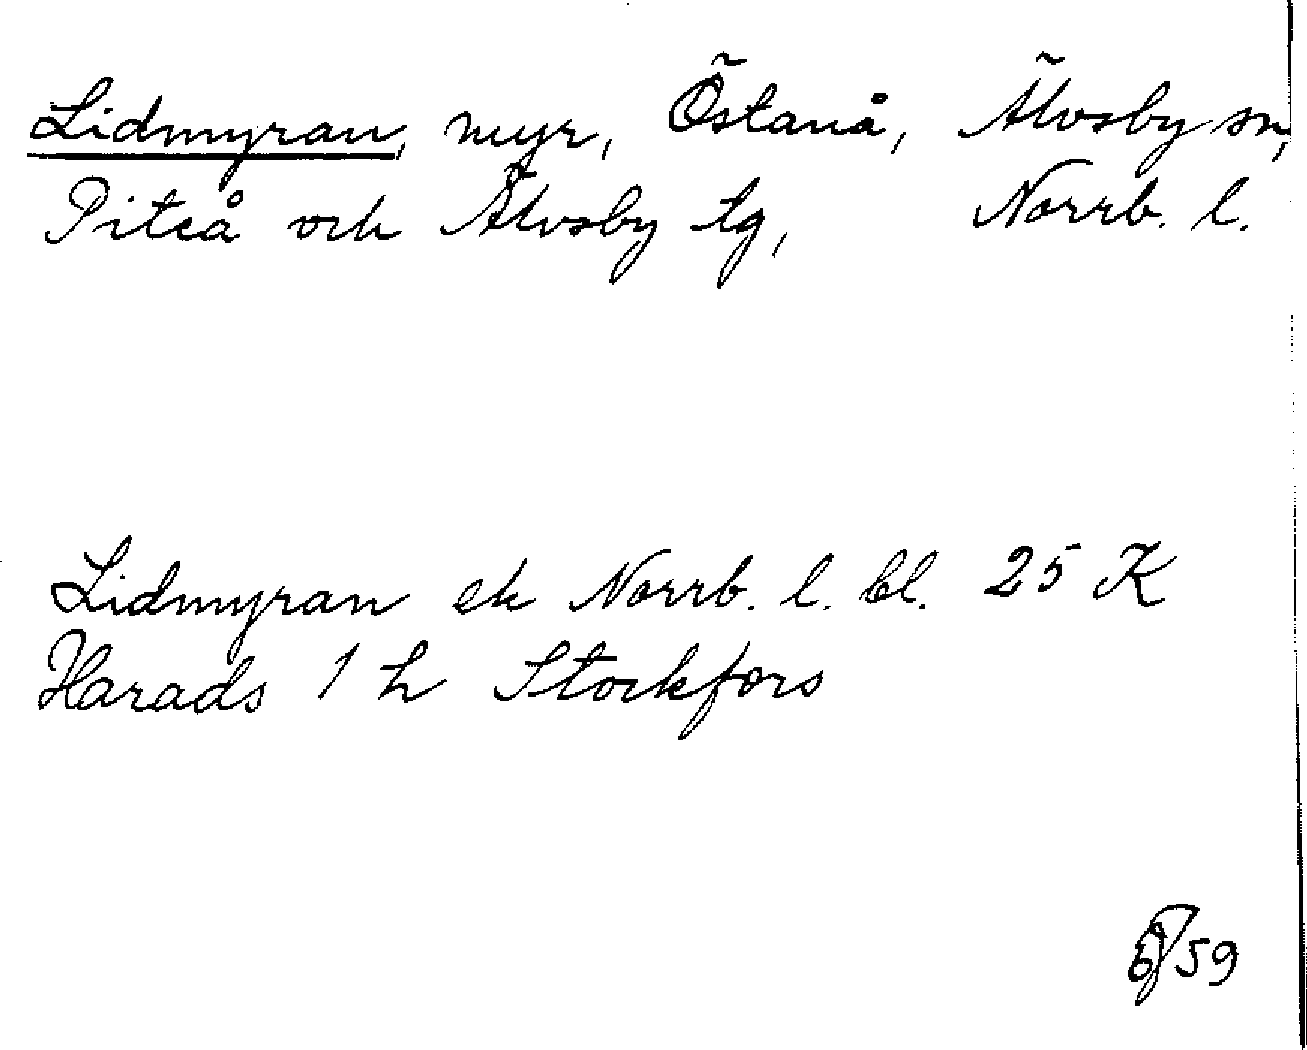 Lidmyran, myr, Östanå, Älvsby sn,
Piteå och Älvsby tg, Norrb. l.
Lidmyran ek Norrb. l. bl. 25 K
Harads 1 h Stockfors
59